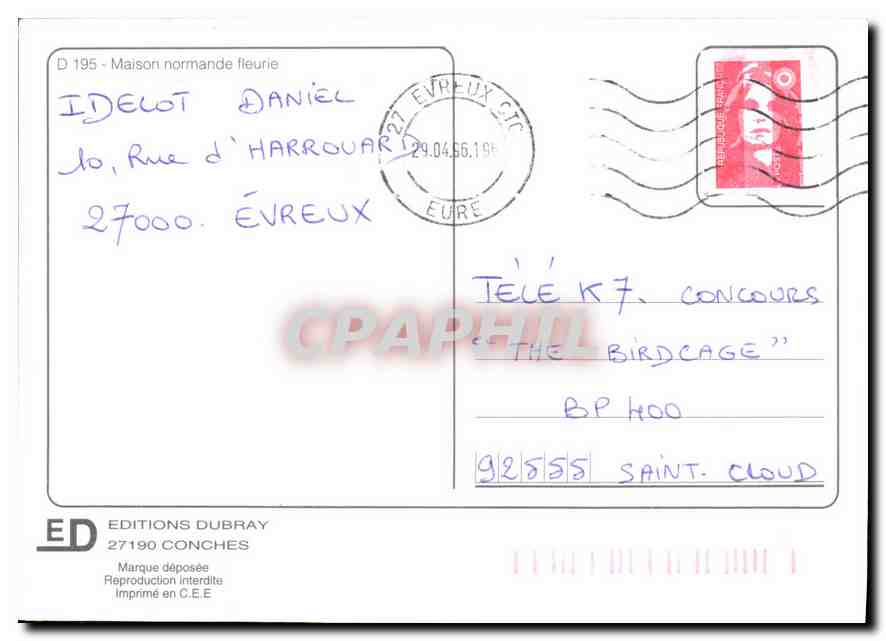 D 195 - Maison normande fleurie
IDELOT DANIEL
10, Rue d'HARROUARD
27000. ÉVREUX
27 EVREUX CTC
29.04.96.19
EURE
REPUBLIQUE FRANÇAISE
POSTE
TÉLÉ K7. CONCOURS
"THE BIRDCAGE"
BP 400
92555 SAINT-CLOUD
CPAPHIL
ED
EDITIONS DUBRAY
27190 CONCHES
Marque déposée
Reproduction interdite
Imprimé en C.E.E